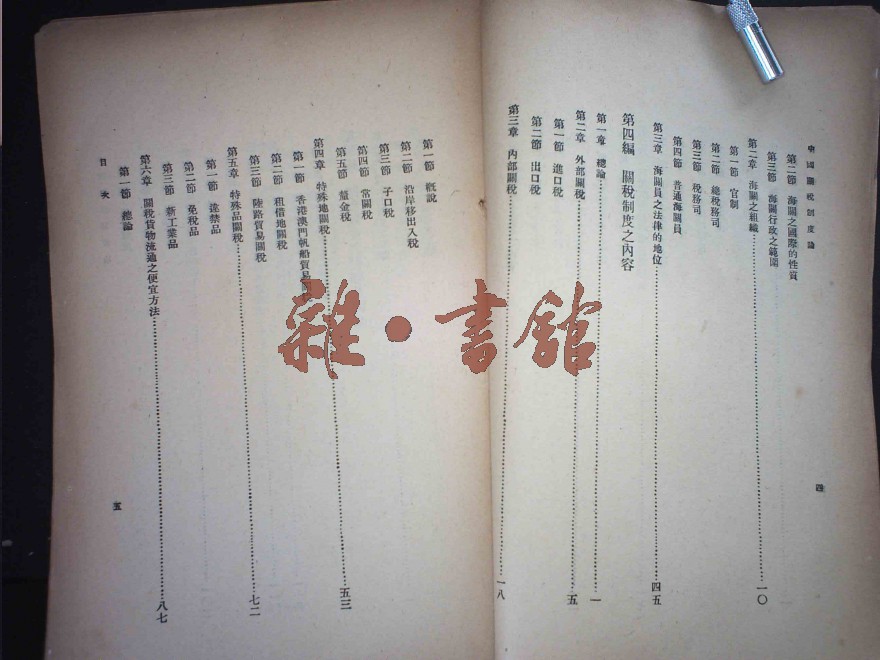 中國關稅制度論
第二節 海關之國際的性質
第三節 海關行政之範圍
第二章 海關之組織…………一〇
第一節 官制
第二節 總稅務司
第三節 稅務司
第四節 普通海關員
第三章 海關員之法律的地位…………四五
第四編 關稅制度之內容
第一章 總論…………一
第二章 外部關稅…………五
第一節 進口稅
第二節 出口稅
第三章 內部關稅…………一八
四
第一節 概說
第二節 沿岸移出入稅
第三節 子口稅
第四節 常關稅
第五節 釐金稅
第四章 特殊地關稅…………五三
第一節 香港澳門帆船貿易
第二節 租借地關稅
第三節 陸路貿易關稅
第五章 特殊品關稅…………七二
第一節 違禁品
第二節 免稅品
第三節 新工業品
第六章 關稅貨物流通之便宜方法…………八七
第一節 總論
目次
五
雜·書館